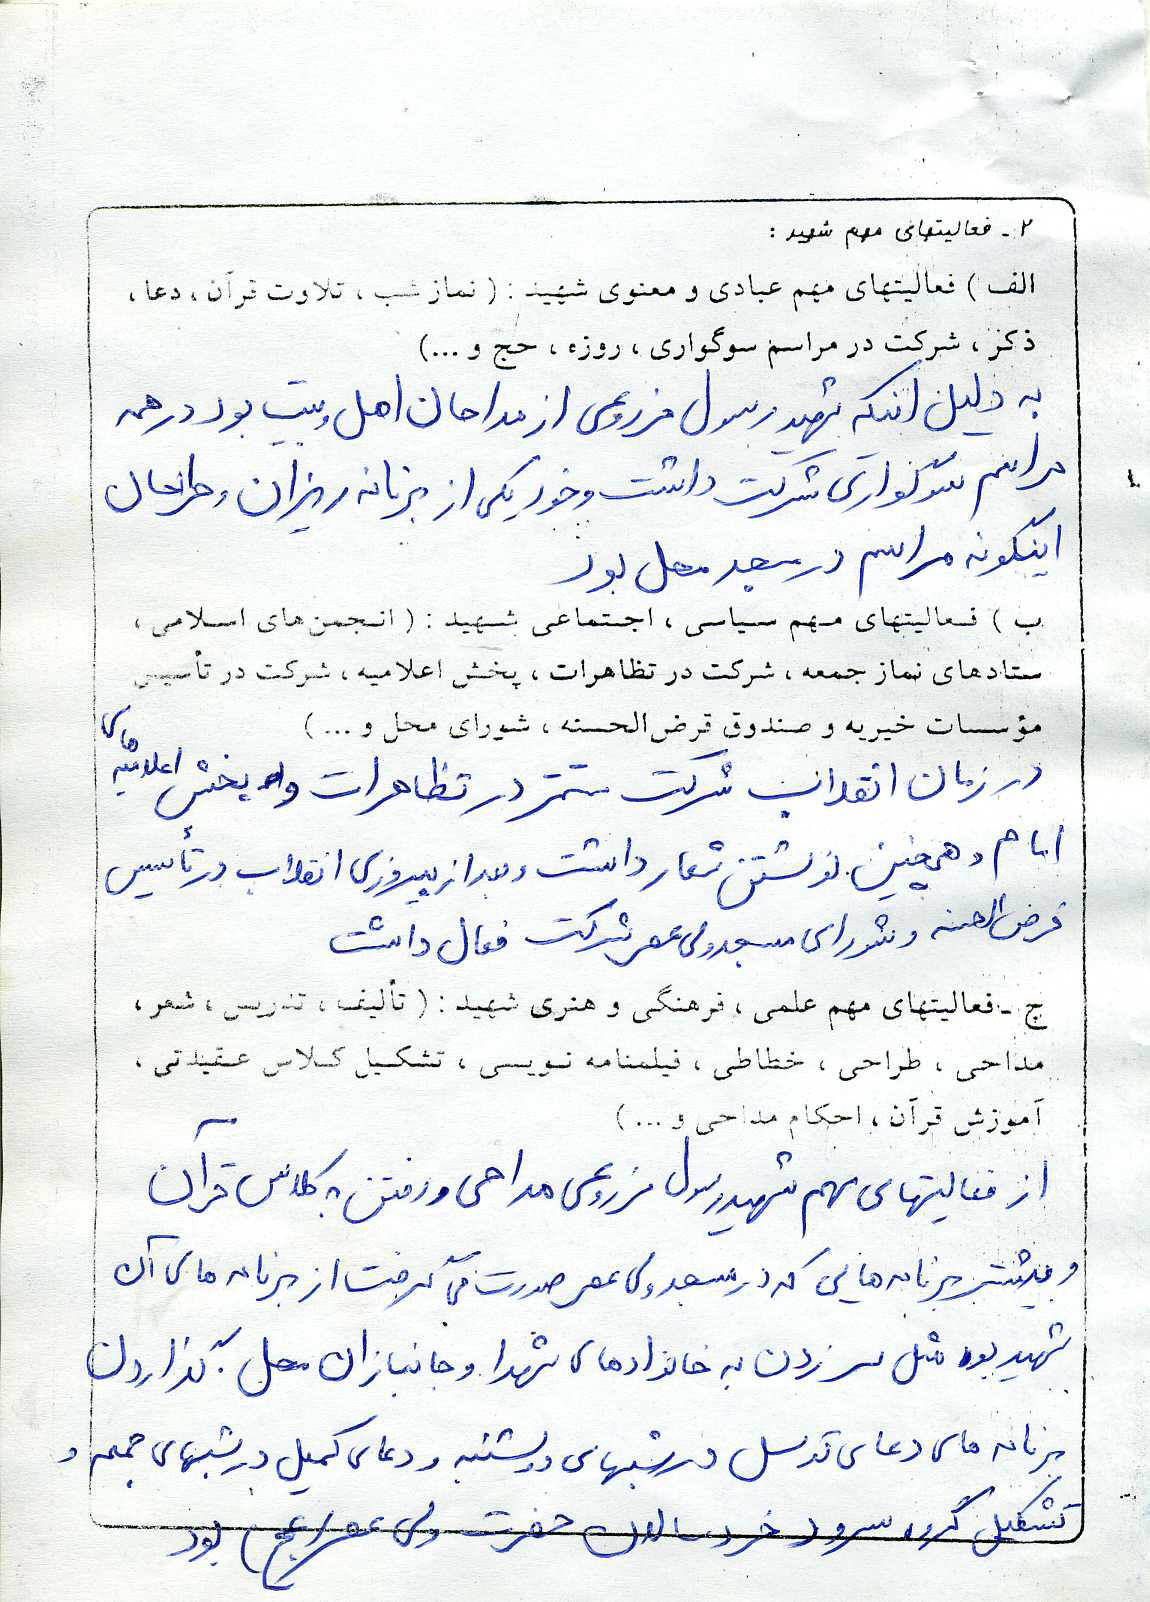 ۲ - فعالیتهای مهم شهید :
الف ) فعالیتهای مهم عبادی و معنوی شهید : ( نماز شب ، تلاوت قرآن ، دعا ،
ذکر ، شرکت در مراسم سوگواری ، روزه ، حج و ...)
به دلیل اینکه شهید رسول مزروعی از مداحان اهل بیت بود در همه
مراسم سوگواری شرکت داشت و خود یکی از برنامه ریزان و طراحان
اینگونه مراسم در مسجد محل بود
ب ) فعالیتهای مهم سیاسی ، اجتماعی شهید : ( انجمن‌های اسلامی ،
ستادهای نماز جمعه ، شرکت در تظاهرات ، پخش اعلامیه ، شرکت در تأسیس
مؤسسات خیریه و صندوق قرض‌الحسنه ، شورای محل و ... )
در زمان انقلاب شرکت مستمر در تظاهرات و پخش اعلامیه های
امام و همچنین نوشتن شعار داشت و بعد از پیروزی انقلاب در تأسیس
قرض الحسنه و شورای مسجد ولی عصر شرکت فعال داشت
ج - فعالیتهای مهم علمی ، فرهنگی و هنری شهید : ( تألیف ، تدریس ، شعر ،
مداحی ، طراحی ، خطاطی ، فیلمنامه نویسی ، تشکیل کلاس عقیدتی ،
آموزش قرآن ، احکام مداحی و ... )
از فعالیتهای مهم شهید رسول مزروعی مداحی و رفتن به کلاس قرآن
و بیشتر برنامه هایی که در مسجد ولی عصر صورت می گرفت از برنامه های آن
شهید بود مثل سر زدن به خانوادهای شهدا و جانبازان محل گذاردن
برنامه های دعای توسل در شبهای دوشنبه و دعای کمیل در شبهای جمعه و
تشکیل گروه سرود خردسالان حضرت ولی عصر (عج) بود